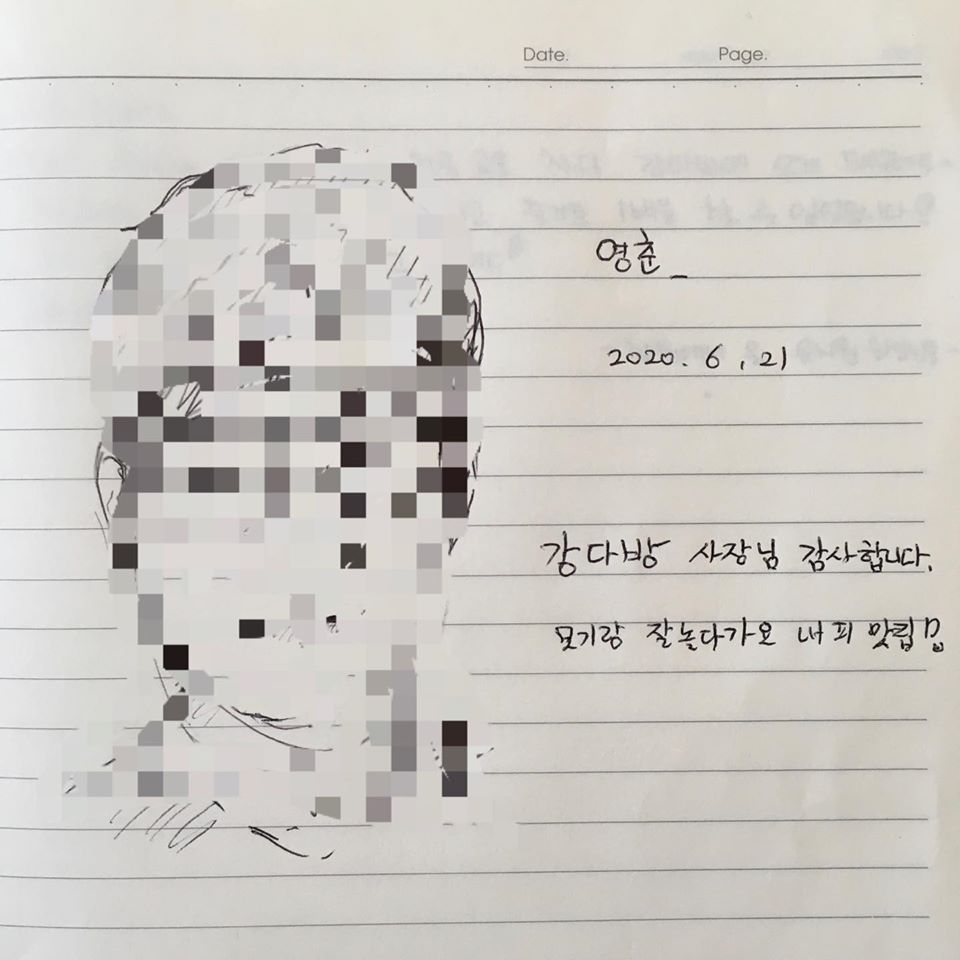 Date. Page.
영훈_
2020. 6. 21
강다방 사장님 감사합니다.
모기랑 잘놀다가오 내 피 맛립